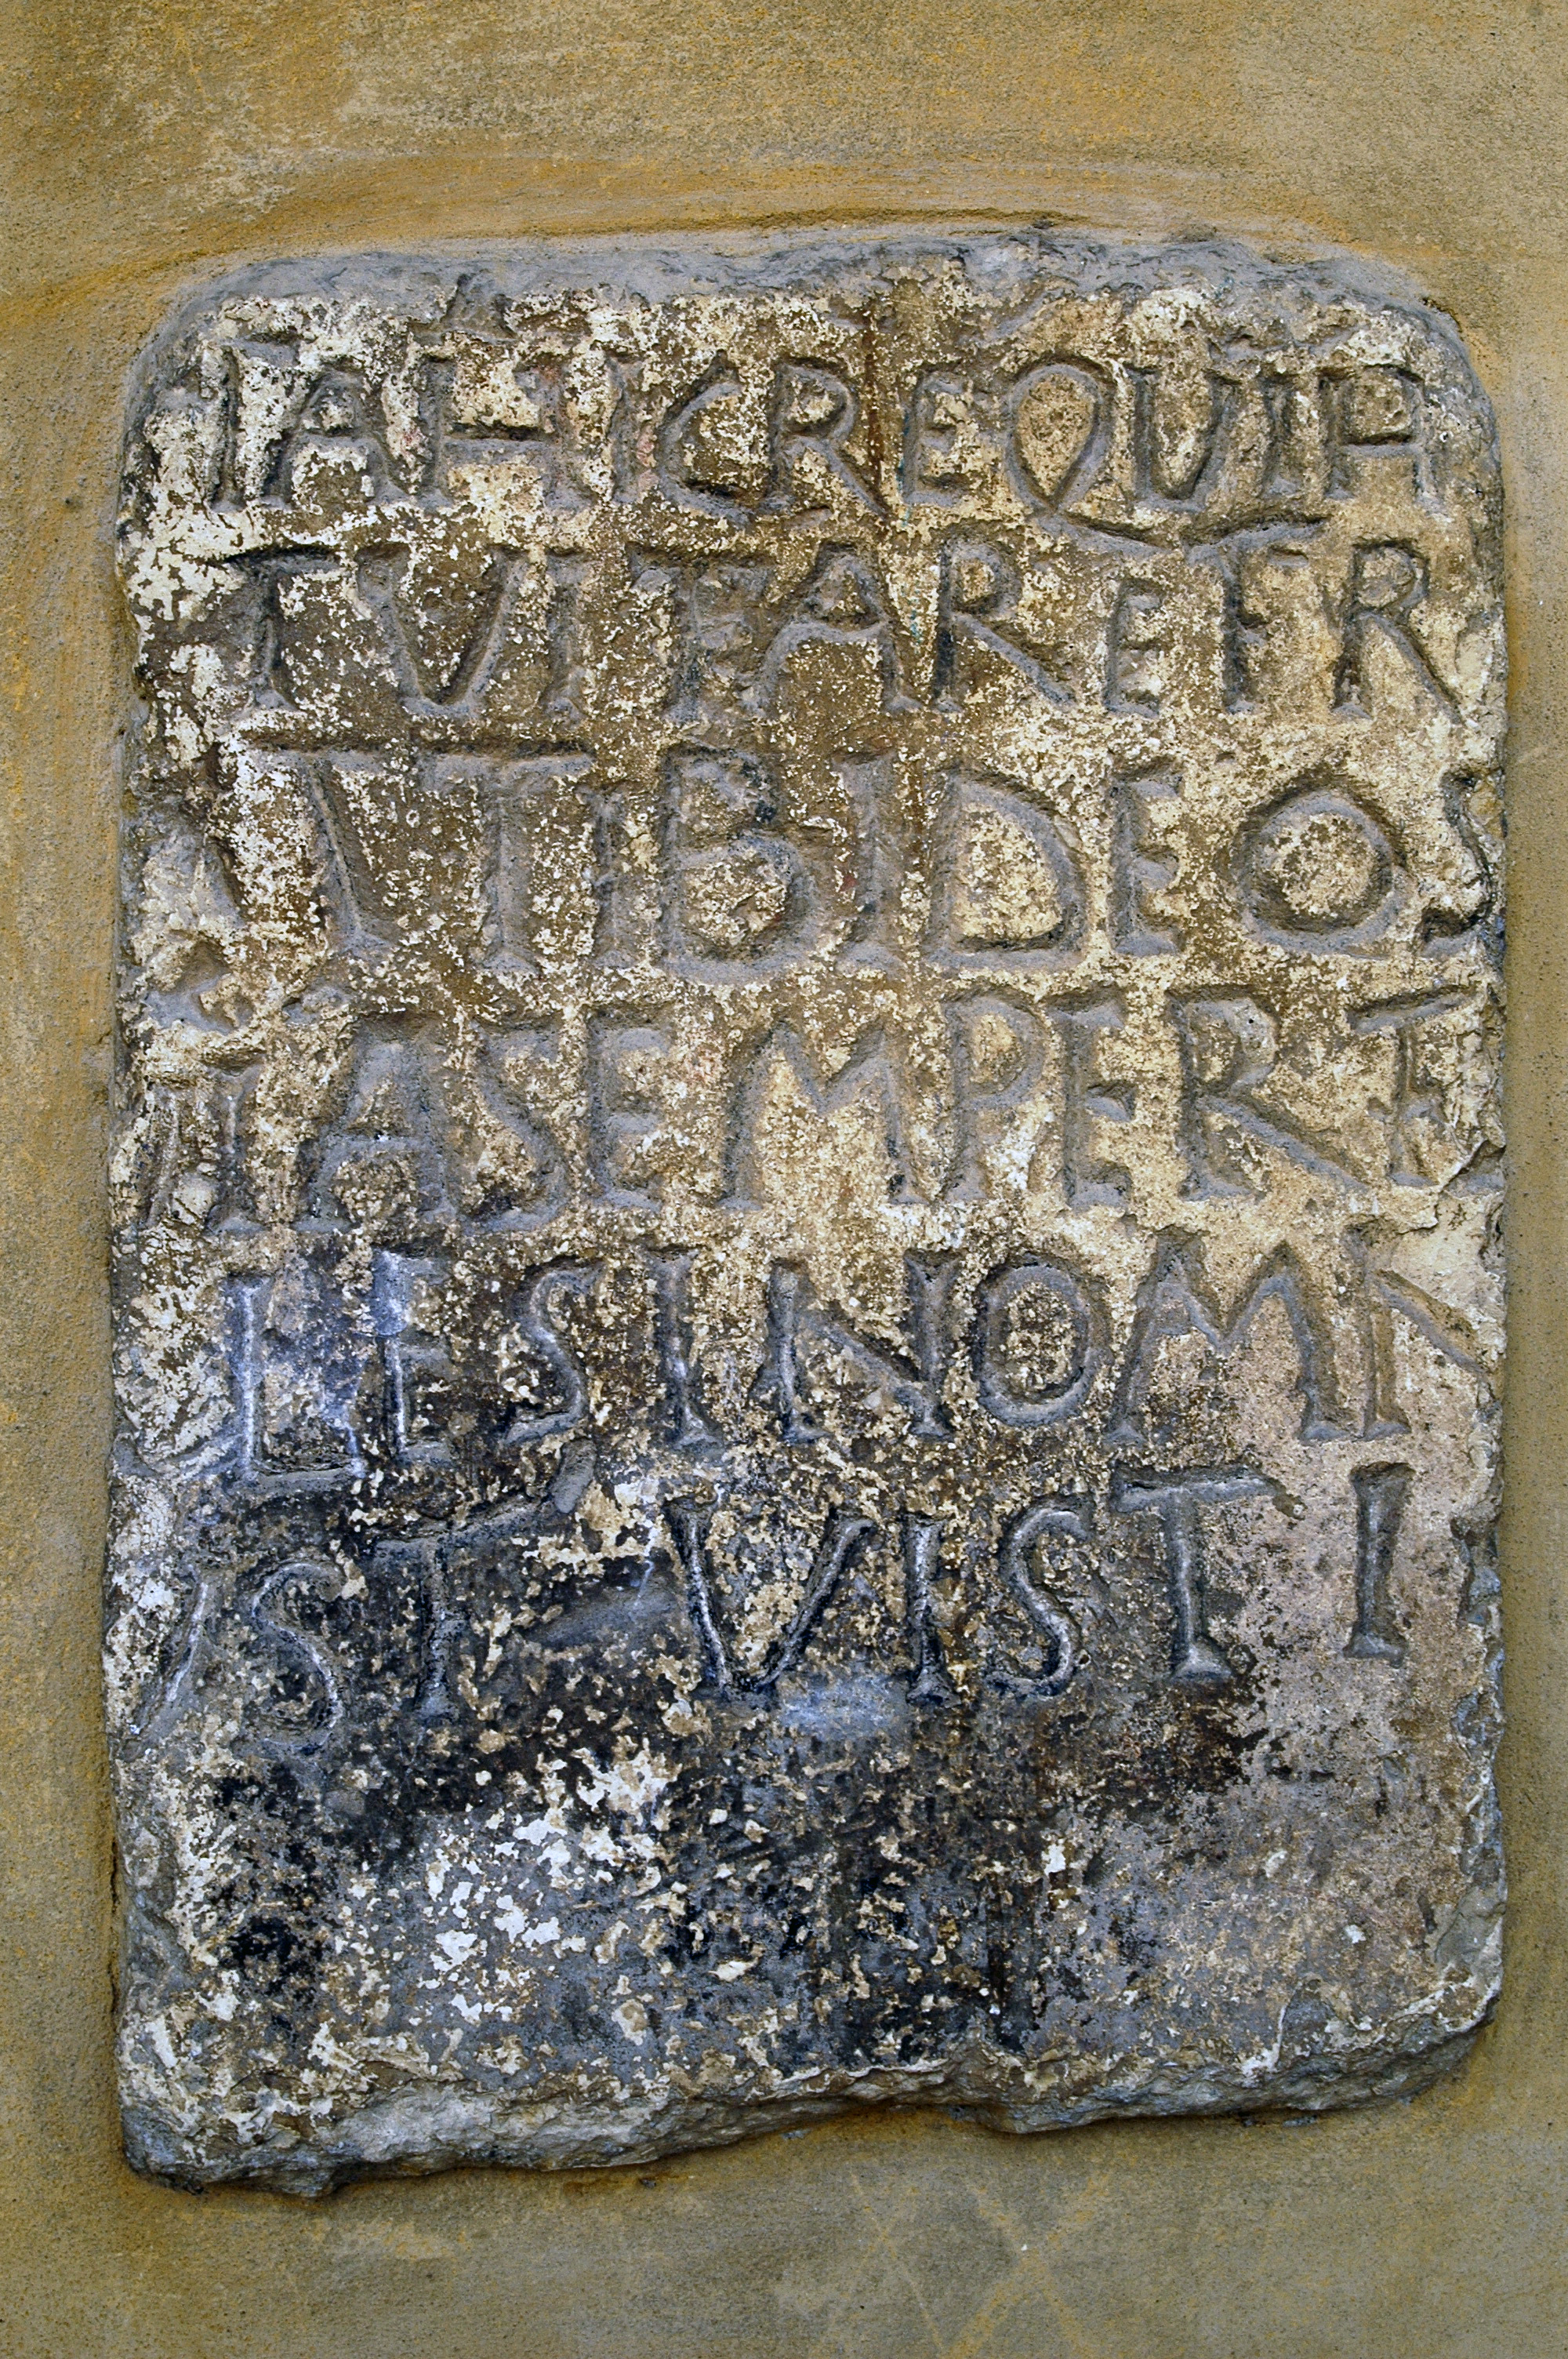 TAHICREQUIA
TVITARETR
VTIBIDEOS
IASEMPERT
LESINOMN
IST VISTI